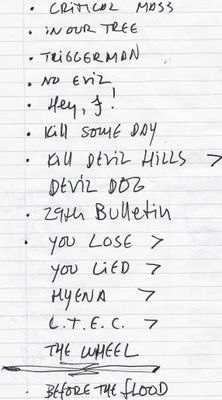 • CRITICAL MASS
• IN OUR TREE
• TRIGGERMAN
• NO EVIL
• Hey, J!
• Kill SOME DAY
• Kill DEVIL HILLS >
DEVIL DOG
• 29th Bulletin
• YOU LOSE >
YOU LIED >
HYENA >
L.T.E.C. >
THE WHEEL
• BEFORE THE FLOOD